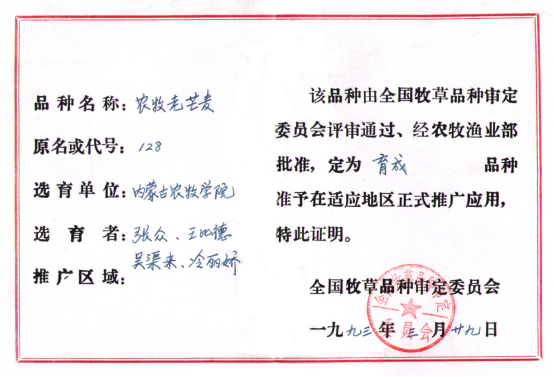 品种名称：农牧老芒麦
原名或代号：128
选育单位：内蒙古农牧学院
选育者：张众、王比德
吴渠来、冷丽娇
推广区域：
该品种由全国牧草品种审定
委员会评审通过、经农牧渔业部
批准，定为 育成 品种
准予在适应地区正式推广应用，
特此证明。
全国牧草品种审定委员会
一九九三年三月廿九日